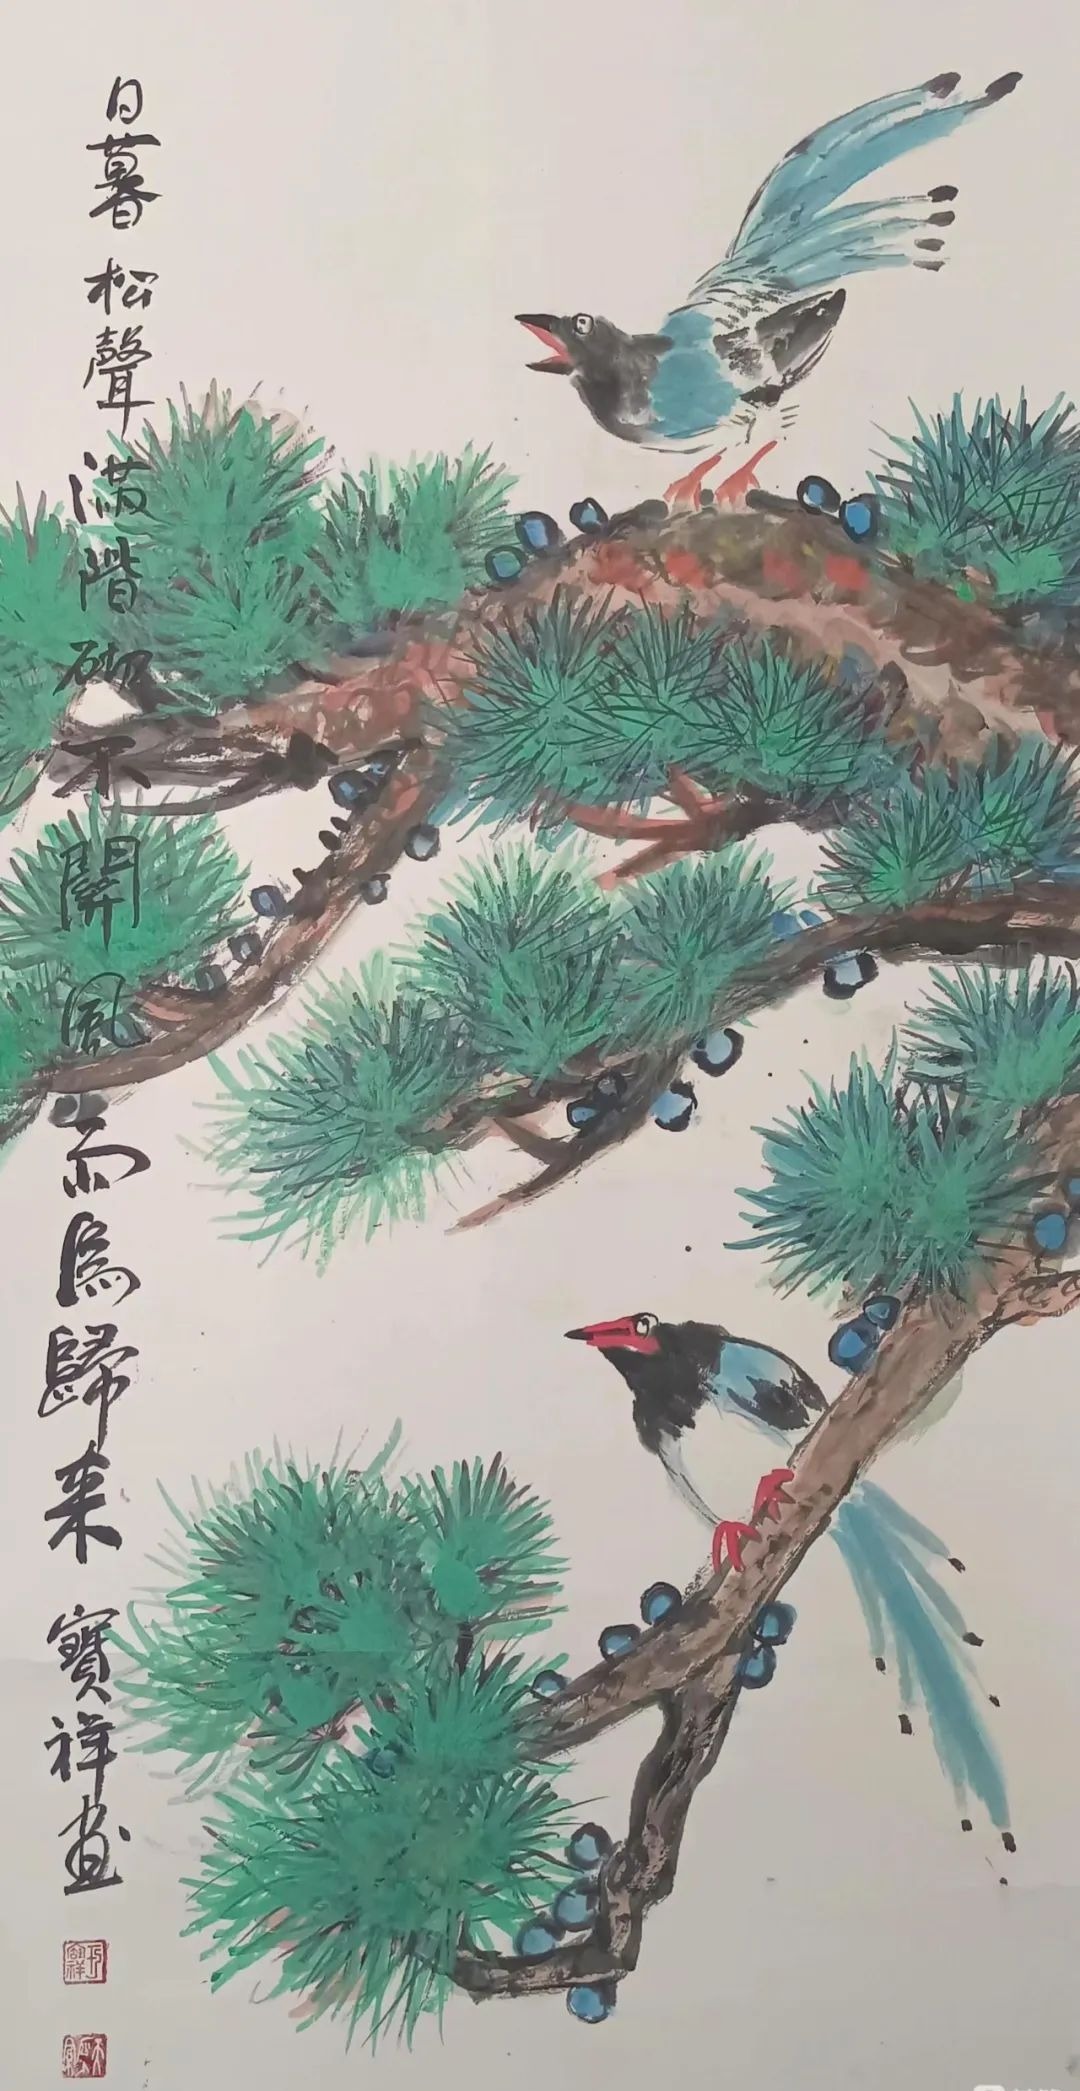 日暮松聲滿階砌不關風雨鳥歸来寳祥畫